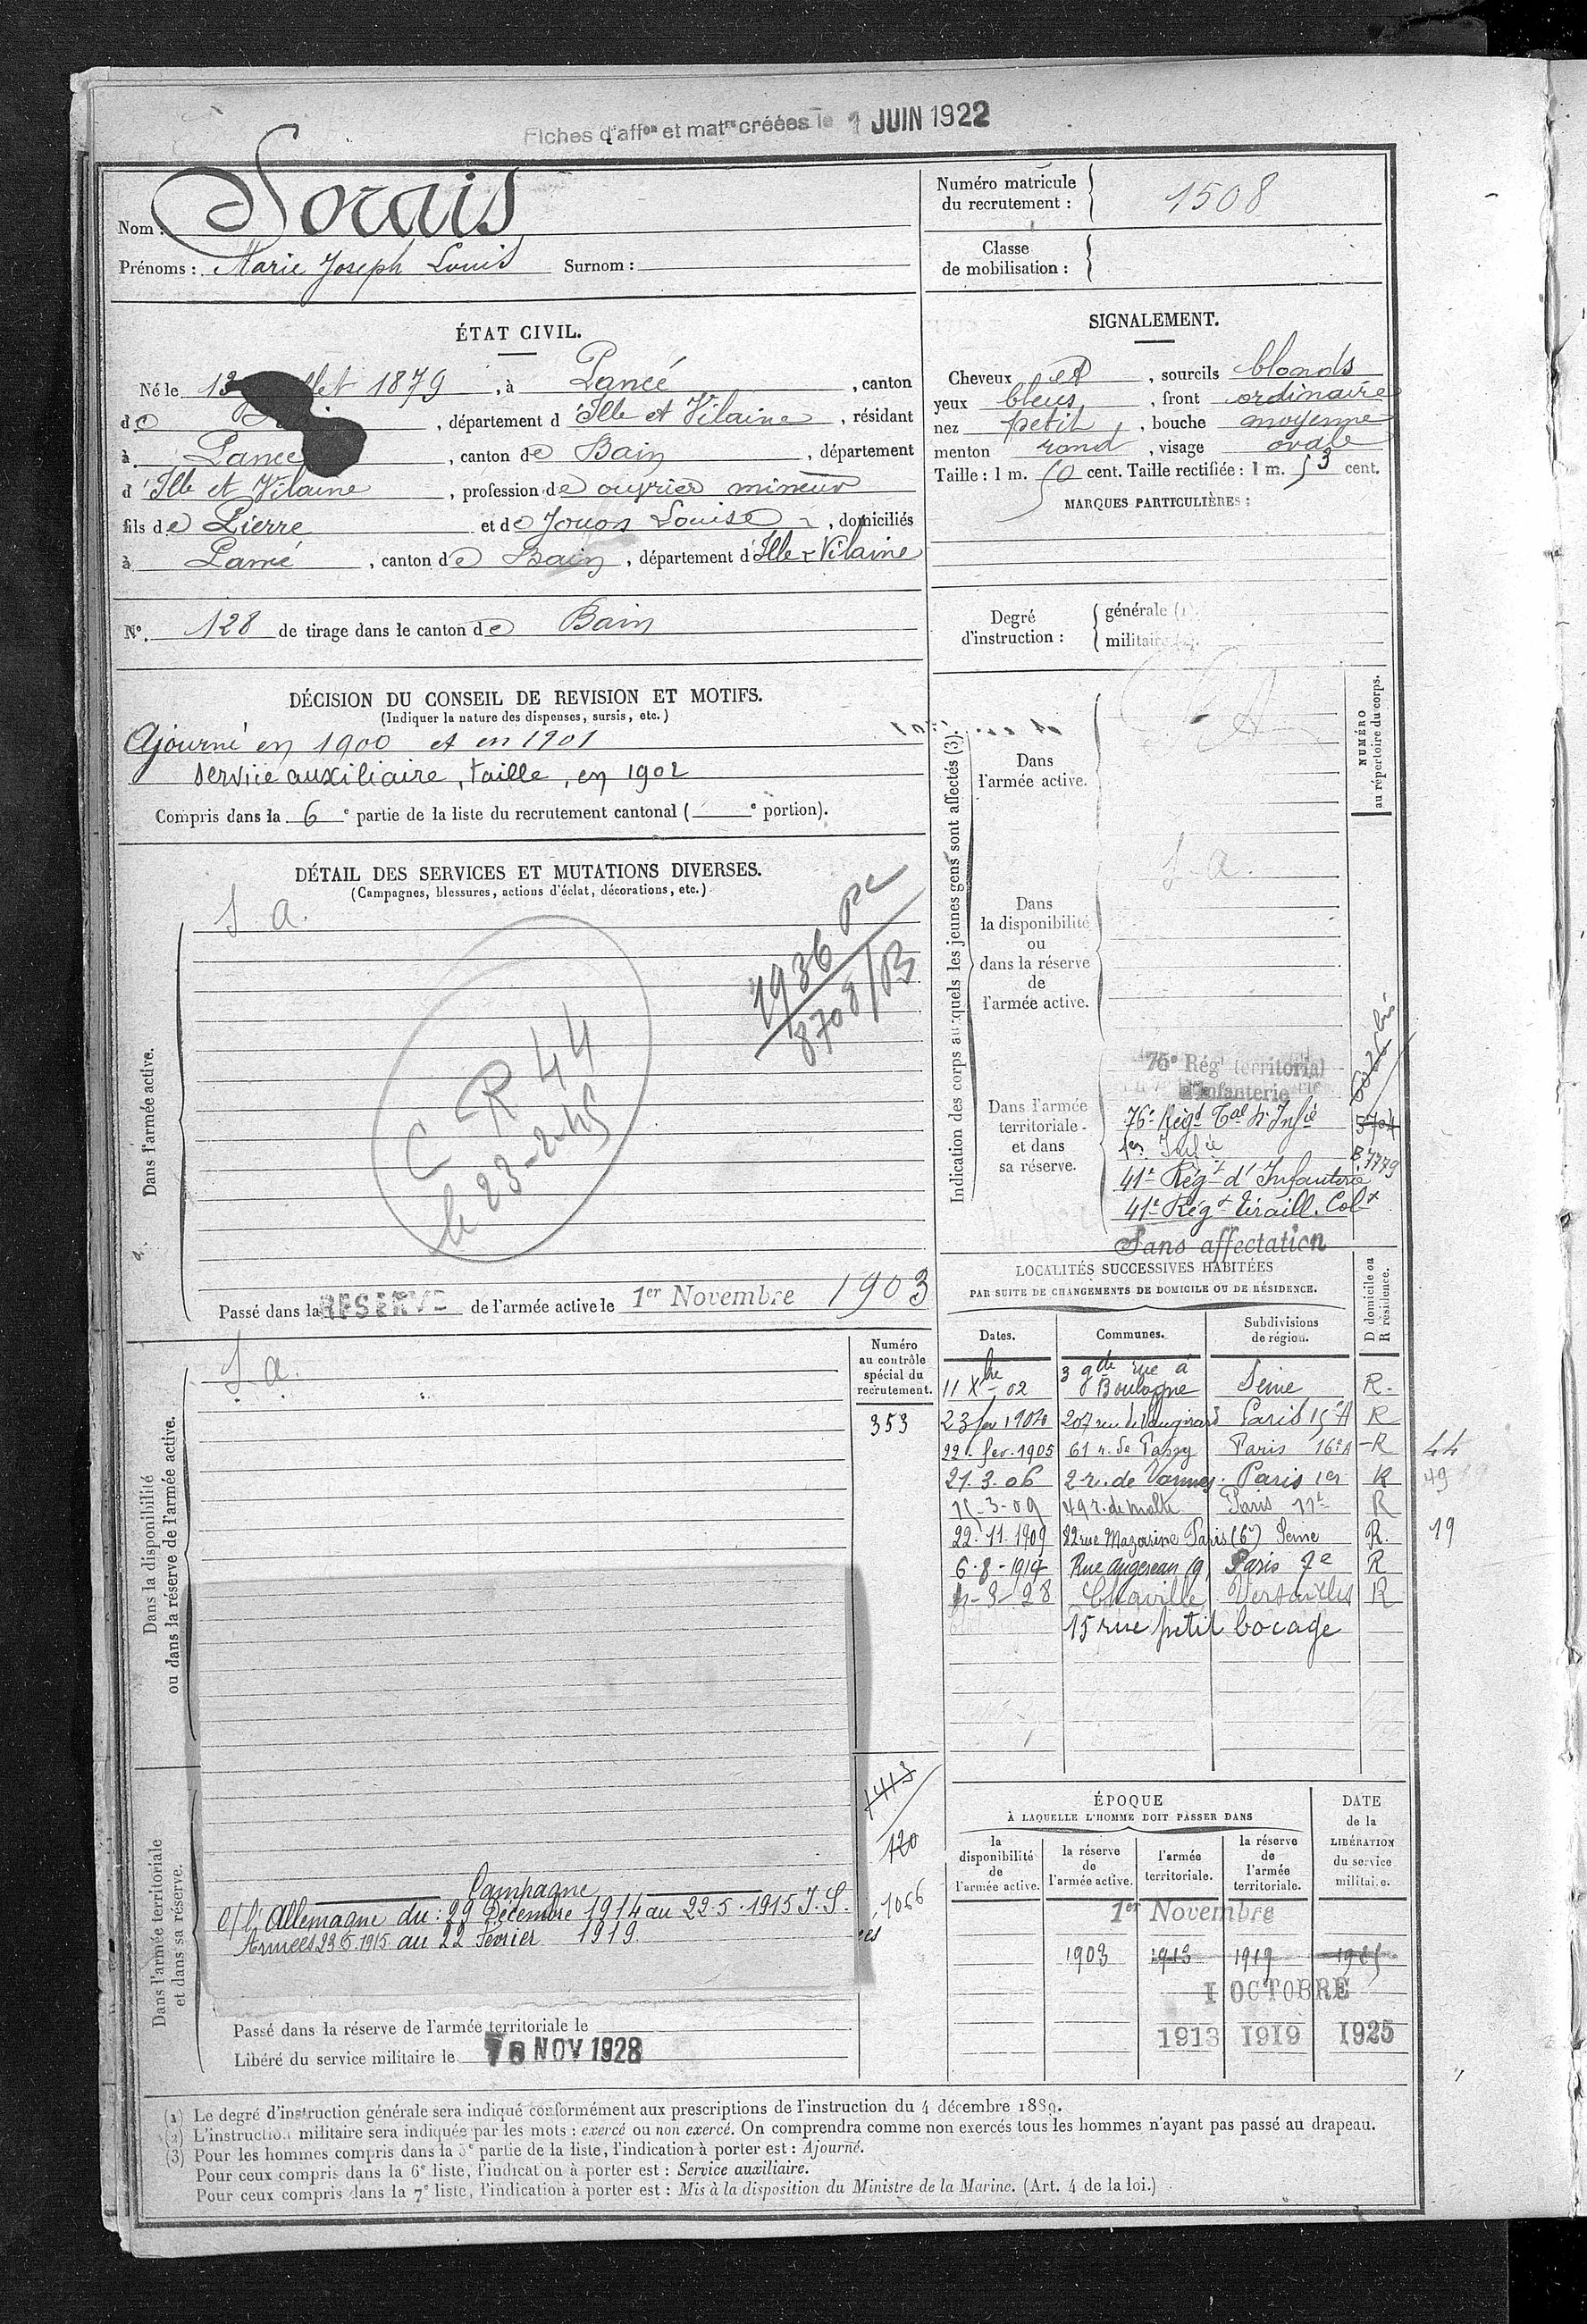 Fiches d'aff^on et mat^re créées le 1 JUIN 1922
Nom : Sorais
Prénoms : Marie Joseph Louis Surnom :
Numéro matricule du recrutement : 1508
Classe de mobilisation :
ÉTAT CIVIL.
Né le 13 llet 1879, à Pancé, canton
de , département d'Ille et Vilaine, résidant
à Pancé, canton de Bain, département
d'Ille et Vilaine, profession de ouvrier mineur
fils de Pierre et de Jouon Louise, domiciliés
à Pancé, canton de Bain, département d'Ille & Vilaine
N° 128 de tirage dans le canton de Bain
SIGNALEMENT.
Cheveux et, sourcils blonds
yeux bleus, front ordinaire
nez petit, bouche moyenne
menton rond, visage ovale
Taille : 1 m. 50 cent. Taille rectifiée : 1 m. 53 cent.
MARQUES PARTICULIÈRES :
Degré d'instruction : générale (1).
militaire (2).
DÉCISION DU CONSEIL DE REVISION ET MOTIFS.
(Indiquer la nature des dispenses, sursis, etc.)
Ajourné en 1900 et en 1901
service auxiliaire, taille, en 1902
Compris dans la 6e partie de la liste du recrutement cantonal ( e portion).
DÉTAIL DES SERVICES ET MUTATIONS DIVERSES.
(Campagnes, blessures, actions d'éclat, décorations, etc.)
Dans l'armée active.
S. a.
1936 PC
8708/B
C R 44
le 23-2-45
Passé dans la RESERVE de l'armée active le 1er Novembre 1903
Indication des corps auxquels les jeunes gens sont affectés (3).
NUMÉRO au répertoire du corps.
Dans l'armée active.
S A
Dans la disponibilité ou dans la réserve de l'armée active.
S. a.
Dans l'armée territoriale et dans sa réserve.
76e Rég^t territorial
d'Infanterie
76e Rég^t T^al d'Inf^ie 5704
1er Inf^ie B 7779
41e Rég^t d'Infanterie
41e Rég^t Tiraill. Col^x
Sans affectation
LOCALITÉS SUCCESSIVES HABITÉES
PAR SUITE DE CHANGEMENTS DE DOMICILE OU DE RÉSIDENCE.
Dates. Communes. Subdivisions de région. D domicile ou R résidence.
11 Xbre 02 3 gde rue à Boulogne Seine R.
23 fev 1904 207 rue de Vaugirard Paris 15e A R
22. fev. 1905 61 r. de Passy Paris 16e A R 44
21. 3. 06 2 r. de Vannes Paris 1er R 49
15-3-09 49 r. de Malte Paris 11e R
22. 11. 1909 82 rue Mazarine Paris (6e) Seine R. 19
6-8-1914 Rue Augereau 19 Paris 7e R
-3-28 Chaville Versailles R
15 rue petit bocage
Dans la disponibilité ou dans la réserve de l'armée active.
S. a.
Numéro au contrôle spécial du recrutement.
353
1413
120
1066
Dans l'armée territoriale et dans sa réserve.
Campagne
c/ l'Allemagne du : 29 Décembre 1914 au 22-5-1915 I. S.
Armées 23.5.1915 au 22 Février 1919.
Passé dans la réserve de l'armée territoriale le
Libéré du service militaire le NOV 1928
ÉPOQUE
À LAQUELLE L'HOMME DOIT PASSER DANS
la disponibilité de l'armée active. la réserve de l'armée active. l'armée territoriale. la réserve de l'armée territoriale.
DATE de la LIBÉRATION du service militaire.
1er Novembre
1903 1913 1919 1925
1 OCTOBRE
1913 1919 1925
(1) Le degré d'instruction générale sera indiqué conformément aux prescriptions de l'instruction du 4 décembre 1889.
(2) L'instruction militaire sera indiquée par les mots : exercé ou non exercé. On comprendra comme non exercés tous les hommes n'ayant pas passé au drapeau.
(3) Pour les hommes compris dans la 5e partie de la liste, l'indication à porter est : Ajourné.
Pour ceux compris dans la 6e liste, l'indication à porter est : Service auxiliaire.
Pour ceux compris dans la 7e liste, l'indication à porter est : Mis à la disposition du Ministre de la Marine. (Art. 4 de la loi.)